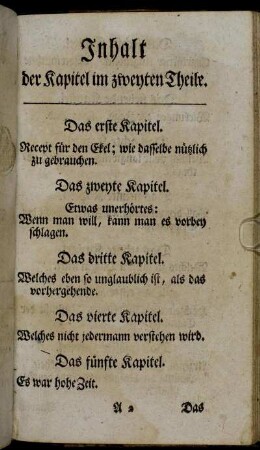 Inhalt
der Kapitel im zweyten Theile.
Das erste Kapitel.
Recept für den Ekel; wie dasselbe nützlich
zu gebrauchen.
Das zweyte Kapitel.
Etwas unerhörtes:
Wenn man will, kann man es vorbey
schlagen.
Das dritte Kapitel.
Welches eben so unglaublich ist, als das
vorhergehende.
Das vierte Kapitel.
Welches nicht jedermann verstehen wird.
Das fünfte Kapitel.
Es war hohe Zeit.
A 2 Das